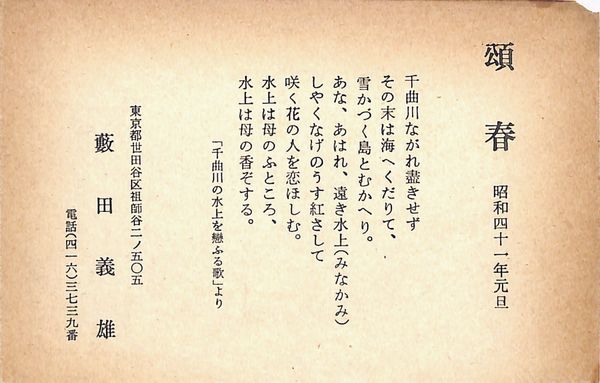 頌春 昭和四十一年元旦
千曲川ながれ盡きせず
その末は海へくだりて、
雪かづく島とむかへり。
あな、あはれ、遠き水上(みなかみ)
しやくなげのうす紅さして
咲く花の人を恋ほしむ。
水上は母のふところ、
水上は母の香ぞする。
「千曲川の水上を戀ふる歌」より
東京都世田谷区祖師谷二ノ五〇五
藪田義雄
電話(四一六)三七三九番